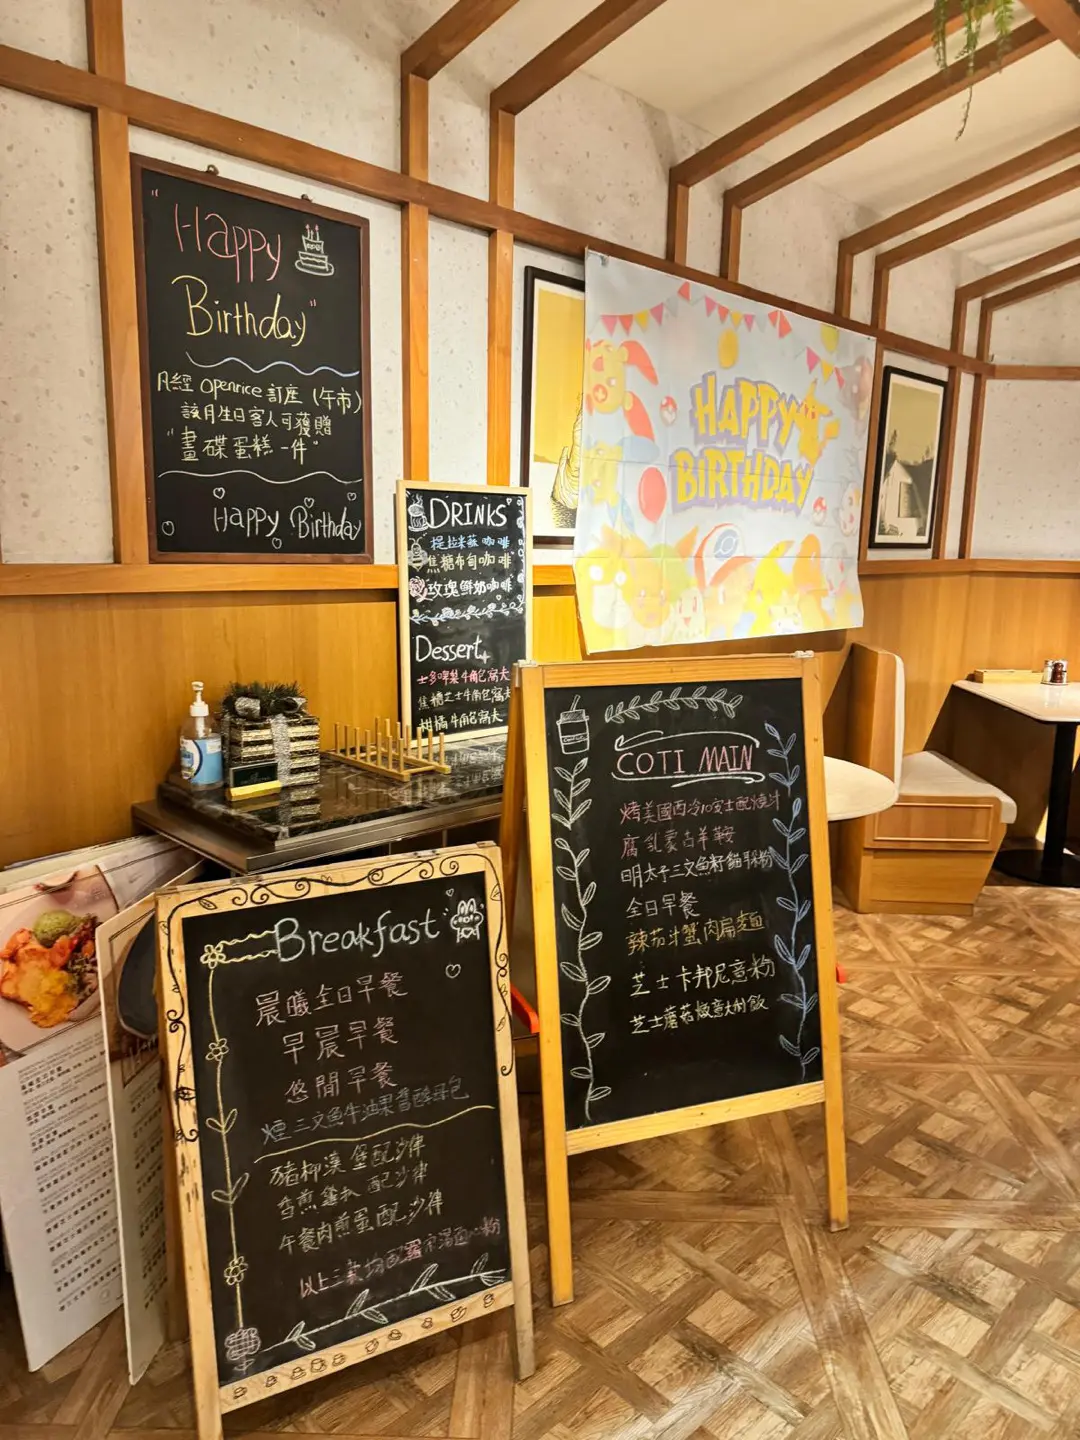 "Happy
Birthday"
凡經 openrice 訂座 (午市)
該月生日客人可獲贈
"畫碟蛋糕一件"
Happy Birthday
HAPPY
BIRTHDAY
DRINKS
提拉米蘇咖啡
焦糖布甸咖啡
玫瑰鮮奶咖啡
Dessert
士多啤梨牛角包窩夫
焦糖芝士牛角包窩夫
柑橘牛角包窩夫
COTI MAIN
烤美國西冷10安士配燒汁
腐乳蒙古羊鞍
明太子三文魚籽貓耳朵粉
全日早餐
辣茄汁蟹肉扁麵
芝士卡邦尼意粉
芝士蘑菇燉意大利飯
Breakfast
晨曦全日早餐
早晨早餐
悠閒早餐
煙三文魚牛油果酸種包
豬柳漢堡配沙律
香煎雞扒配沙律
午餐肉煎蛋配沙律
以上三款均配羅宋湯通心粉